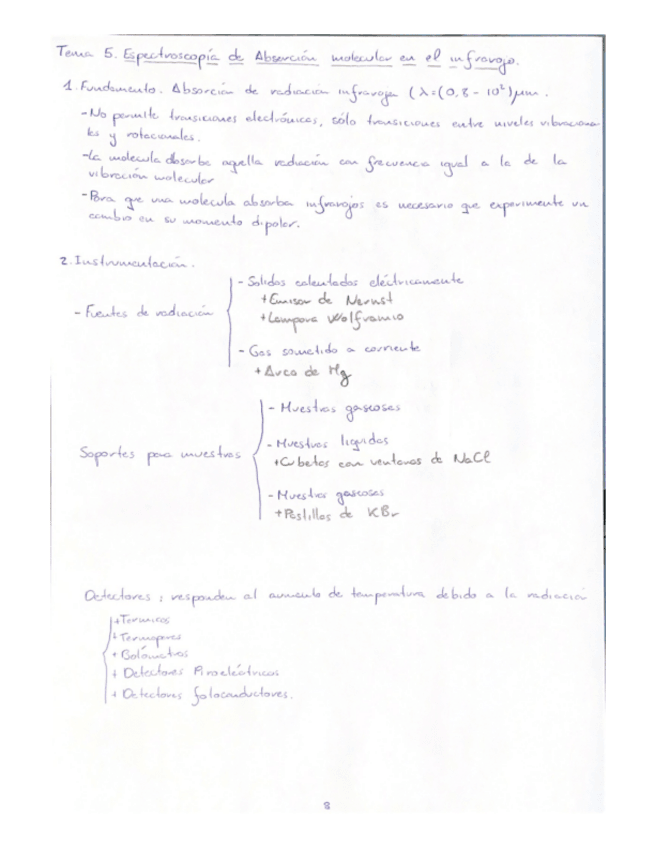 Tema 5. Espectroscopía de Absorción molecular en el infrarojo.
1. Fundamento. Absorción de radiación infraroja (λ=(0,8 - 10²)μm.
- No permite transiciones electrónicas, sólo transiciones entre niveles vibraciona
les y rotacionales.
- La molecula absorbe aquella radiación con frecuencia igual a la de la
vibración molecular
- Para que una molecula absorba infrarojos es necesario que experimente un
cambio en su momento dipolar.
2. Instrumentación.
- Fuentes de radiación
- Solidos calentados eléctricamente
+ Emisor de Nernst
+ Lampara Wolframio
- Gas sometido a corriente
+ Arco de Hg
Soportes para muestras
- Muestras gaseosas
- Muestras liquidas
+ Cubetas con ventanas de NaCl
- Muestras gaseosas
+ Pastillas de KBr
Detectores; responden al aumento de temperatura debido a la radiación
+ Termicos
+ Termopares
+ Bolómetros
+ Detectores Piroeléctricos
+ Detectores fotoconductores.
8